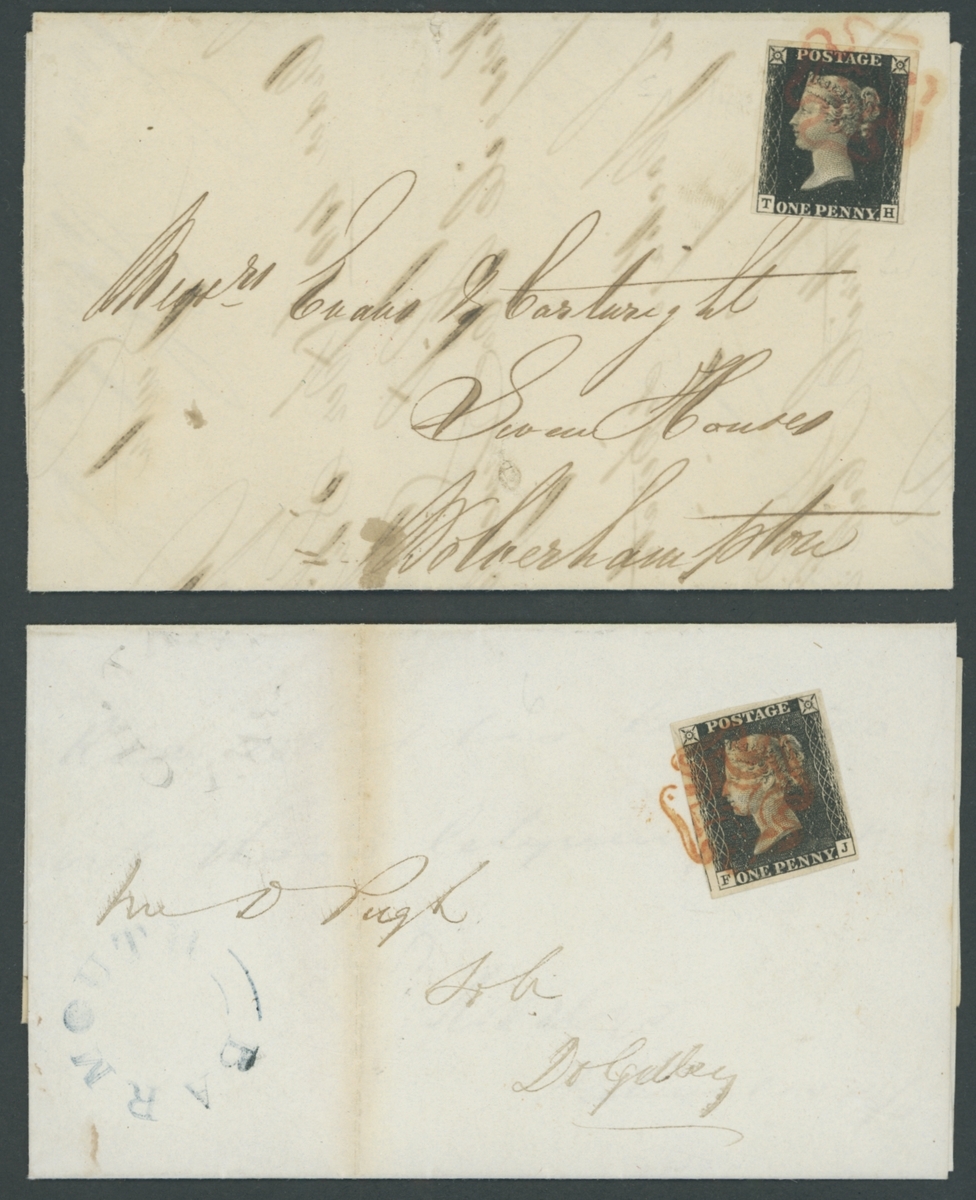 POSTAGE
T ONE PENNY H
Messrs Evans & Cartwright
Seven Houses
Wolverhampton
POSTAGE
F ONE PENNY J
D Pugh
Dolgelley
BARMOUTH